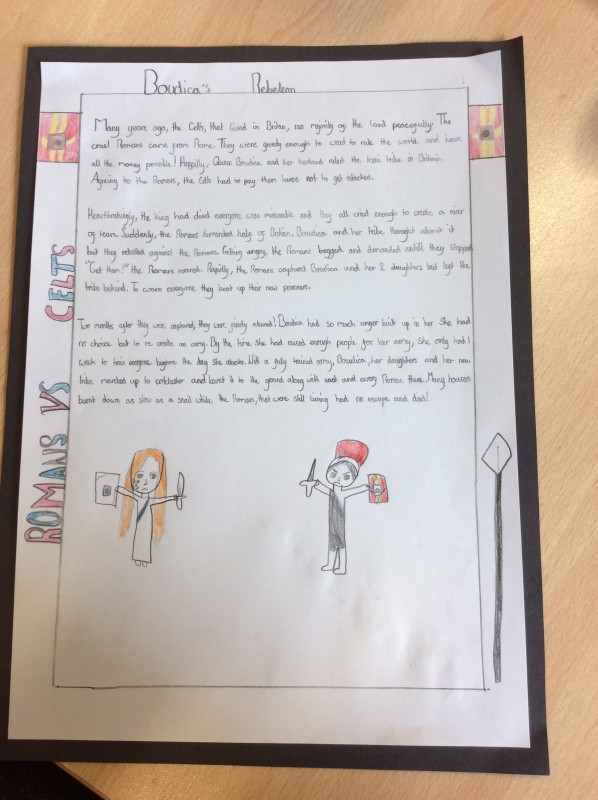 Boudica's Rebelion
Many years ago, the Celts, that lived in Britan, ran majority of the land peacefully. The
cruel Romans came from Rome. They were greedy enough to want to rule the world and have
all the money possible! Happily, Queen Boudica and her husband ruled the Iceni tribe in Britain.
Agreing to the Romans, the Celts had to pay them taxes not to get attacked.
Heartbrakingly, the king had died everyone was misserable and they all cried enough to create a river
of tears. Suddenly, the Romans demanded half of Britan. Boudica and her tribe thought about it
but they rebelled against the Romans. Getting angry, the Romans begged and demanded untill they stopped.
"Get them!" the Romans roared. Rapidly, the Romans captured Boudica and her 2 daughters but left the
tribe behind. To warn everyone they beat up their new prisoners.
Two months after they were captured, they were finely released! Boudica had so much anger built up in her she had
no choice but to re create an army. By the time she had raised enough people for her army, she only had 1
week to train everyone before the day she attacks. With a fully trained army, Boudica, her daughters and her new
tribe marched up to colchester and burnt it to the ground along with each and every Roman there. Many houses
burnt down as slow as a snail while the Romans, that were still living had no escape and died!
ROMANS VS CELTS